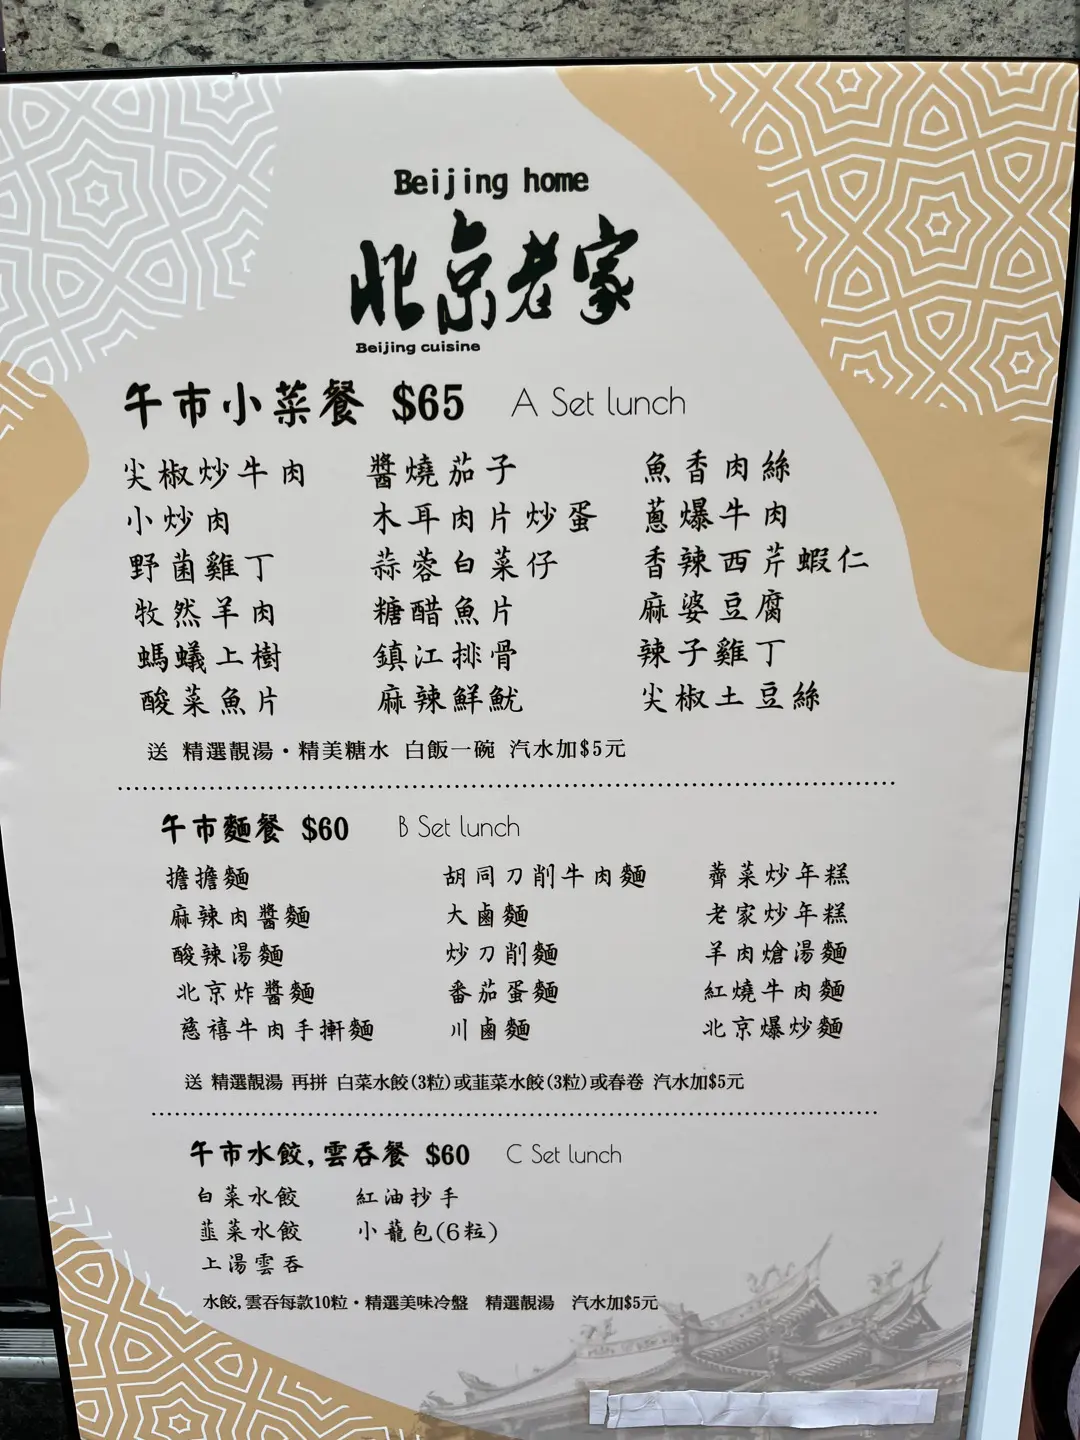 Beijing home
北京老家
Beijing cuisine
午市小菜餐 $65 A Set lunch
尖椒炒牛肉 醬燒茄子 魚香肉絲
小炒肉 木耳肉片炒蛋 蔥爆牛肉
野菌雞丁 蒜蓉白菜仔 香辣西芹蝦仁
牧然羊肉 糖醋魚片 麻婆豆腐
螞蟻上樹 鎮江排骨 辣子雞丁
酸菜魚片 麻辣鮮魷 尖椒土豆絲
送 精選靚湯・精美糖水 白飯一碗 汽水加$5元
午市麵餐 $60 B Set lunch
擔擔麵 胡同刀削牛肉麵 薺菜炒年糕
麻辣肉醬麵 大鹵麵 老家炒年糕
酸辣湯麵 炒刀削麵 羊肉熗湯麵
北京炸醬麵 番茄蛋麵 紅燒牛肉麵
慈禧牛肉手擀麵 川鹵麵 北京爆炒麵
送 精選靚湯 再拼 白菜水餃(3粒)或韮菜水餃(3粒)或春卷 汽水加$5元
午市水餃,雲吞餐 $60 C Set lunch
白菜水餃 紅油抄手
韮菜水餃 小籠包(6粒)
上湯雲吞
水餃,雲吞每款10粒・精選美味冷盤 精選靚湯 汽水加$5元